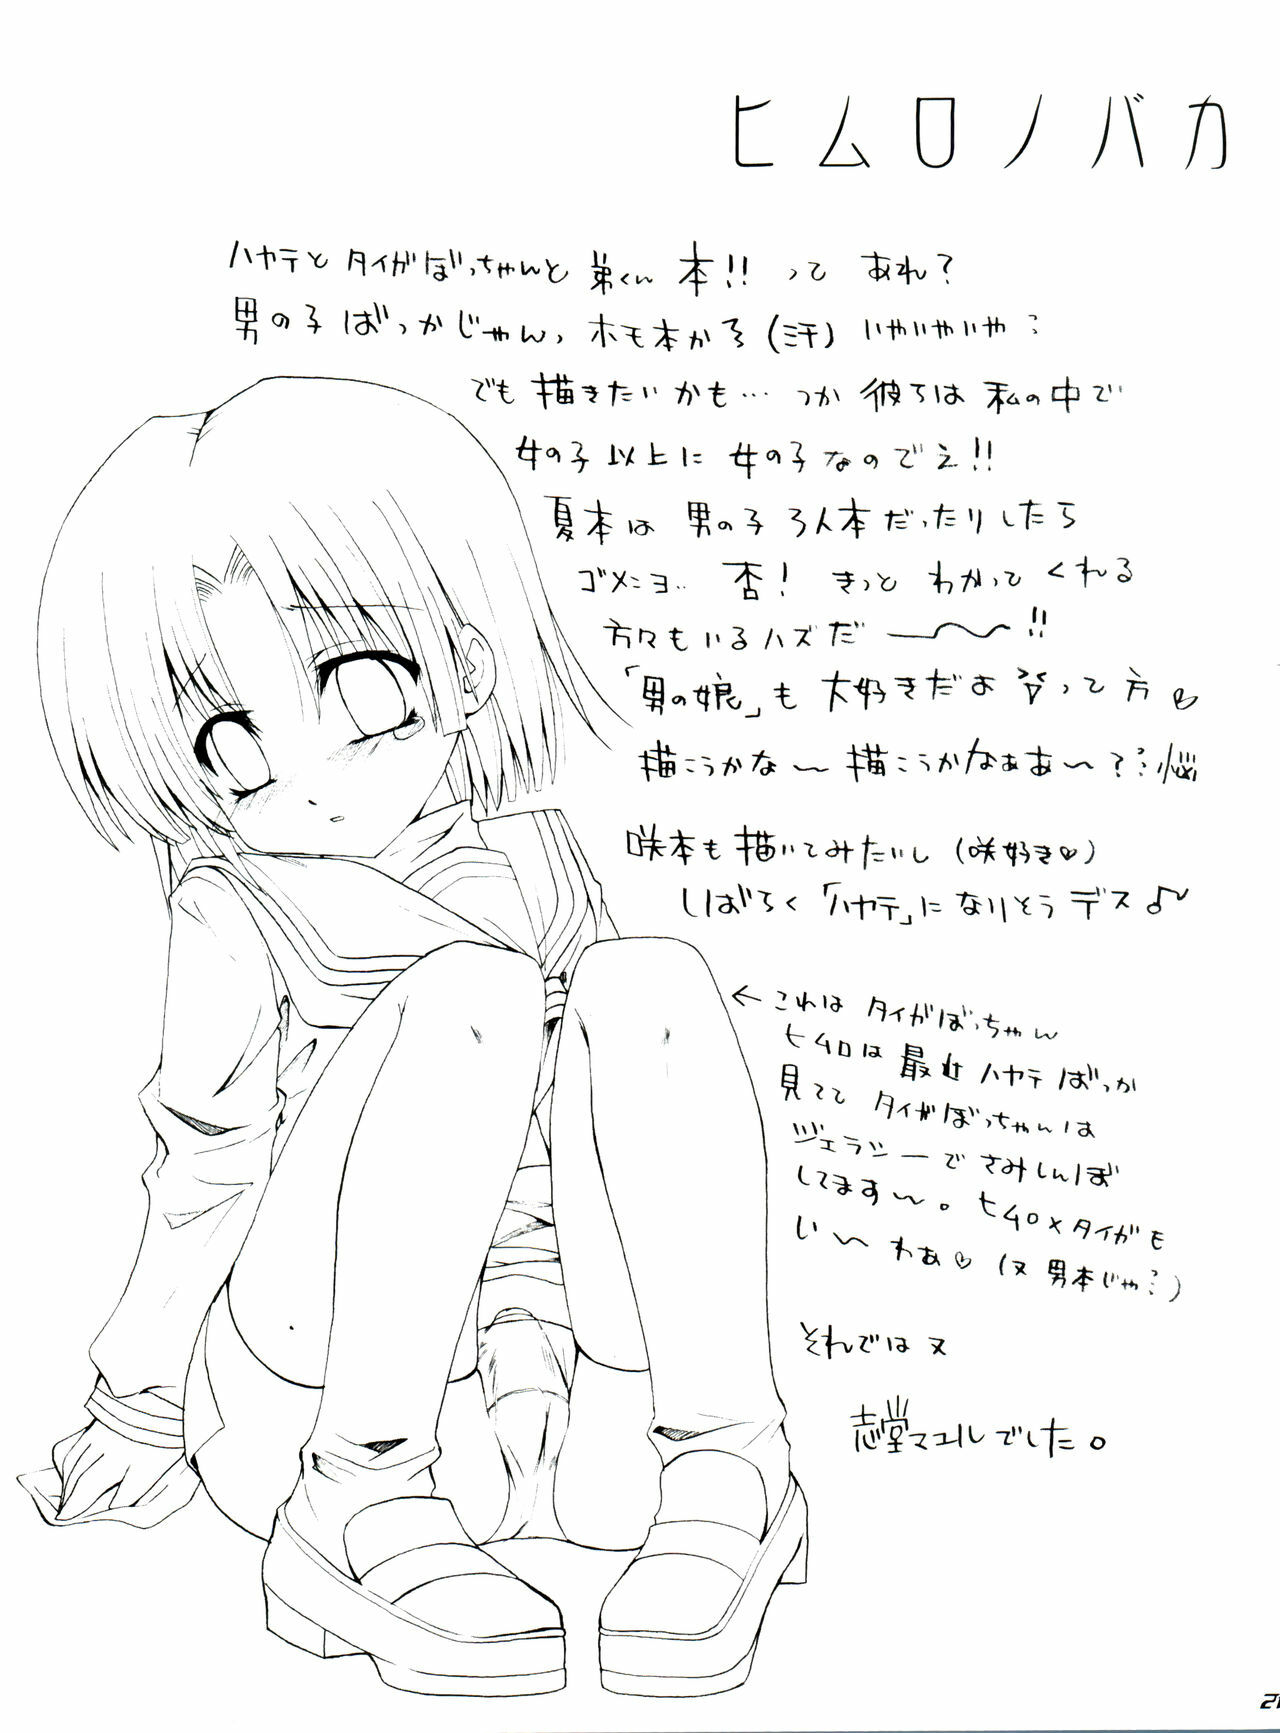 ヒムロノバカ
ハヤテと タイガぼっちゃんと 弟くん 本!! って あれ?
男の子 ばっかじゃんっ ホモ本かよ (汗) いやいやいや…
でも 描きたい かも… つか 彼らは 私の中で
女の子 以上に 女の子なのでえ!!
夏本は 男の子 3人本だったりしたら
ゴメンヨ… 否! きっと わかって くれる
方々も いる ハズだ ―〜〜 !!
「男の娘」も 大好きだよ って 方 ♡
描こうかな〜 描こうかなぁあ〜? 悩
咲本も 描いてみたいし (咲好き♡)
しばらく 「ハヤテ」に なりそう デス♪
← これは タイガぼっちゃん
ヒムロは 最近 ハヤテ ばっか
見てて タイガぼっちゃんは
ジェラシーで さみしんぼ
してます〜。 ヒムロ×タイガも
い〜 わぁ♡ (又 男本じゃ…)
それでは 又
志堂マユルでした。